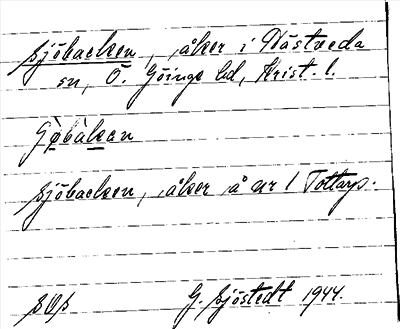 Sjöbacken, åker i Hästveda
sn, Ö. Göinge hd, Krist. l.
Sjöbacken, åker å nr 1 Tottarp.
G. Sjöstedt 1944.